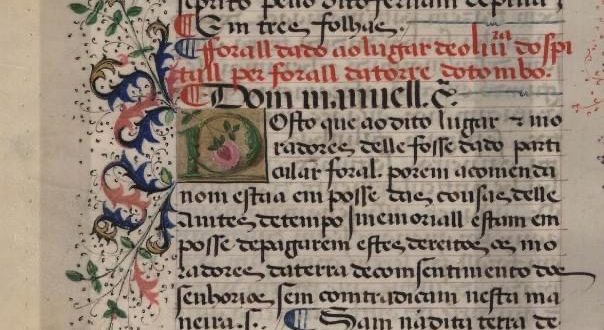 scprito pello dito fernam de pina
E m tres folhas
forall dado ao lugar de oliu.ra do spi
tall per forall da torre do tombo.
Dom manuell. &c.
Posto que ao dito lugar & mo
radores delle fosse dado parti
cular foral. porem a comenda
nom estaa em posse das cousas delle
Amtes de tempo Jmemoriall estam em
posse de pagarem estes dereitos os mo
radores da terra de comsentimento dos
senhorios sem contradicam nesta ma
neira .s. Sam na dita terra de